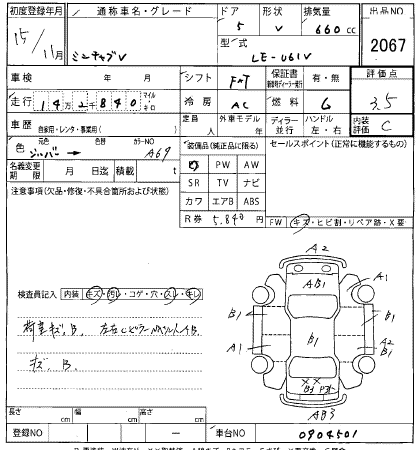 初度登録年月 通称車名・グレード ドア 形状 排気量 出品NO
15/11月 ミニキャブV 5 V 660cc 2067
型式 LE-U61V
車検 年 月 シフト FAT 保証書 有・無 評価点
走行 14万2千840 マイル・キロ 冷房 AC 燃料 G 3.5
車歴 自家用・レンタ・事業用( ) 定員 人 外車モデル 年 ディーラー・並行 ハンドル 左・右 内装評価 C
色 シルバー→ 色替 カラーNO A69 装備品(純正品に限る) セールスポイント(正常に機能するもの)
名義変更期限 月 日迄 積載 t PW AW
注意事項(欠品・修復・不具合箇所および状態) SR TV ナビ
カワ エアB ABS
R券 5,840円 FW キズ・ヒビ割・リペア跡・X要
A2
A1
B1 AB1
検査員記入 内装 キズ・汚レ・コゲ・穴・スレ・キレ
荷室キズ、B、
B1 B1 B1
A1 A2 B1
キズ、B、
XX
AB3
長さ cm 幅 cm 高さ cm
登録NO 車台NO 0904501